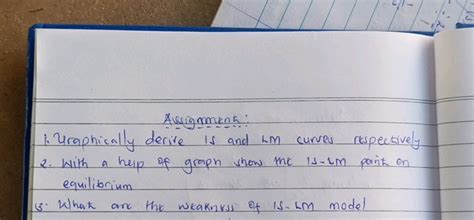 Assignment:
1. Graphically derive IS and LM curves respectively
2. With a help of graph show the IS-LM point on
equilibrium
3. What are the weakness of IS-LM model